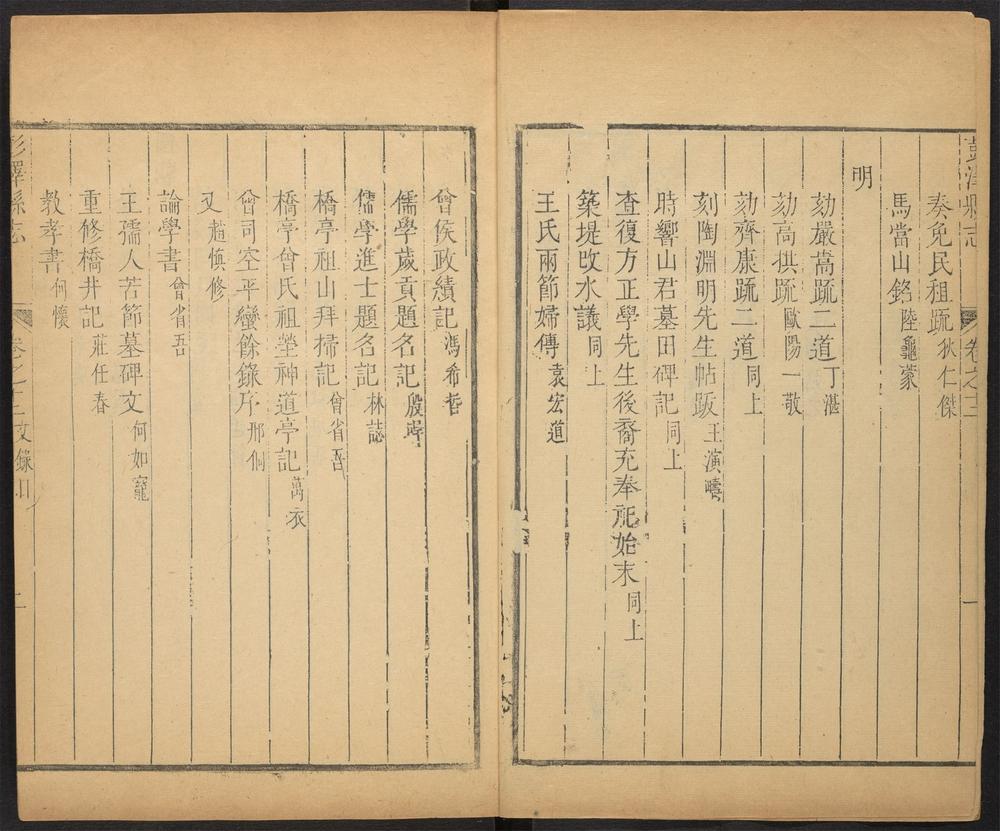 彭澤縣志 卷之十三 一
奏免民租疏 狄仁傑
馬當山銘 陸龜蒙
明
劾嚴嵩疏二道 丁湛
劾高拱疏 歐陽一敬
劾齊康疏二道 同上
刻陶淵明先生帖跋 王演疇
時響山君墓田碑記 同上
查復方正學先生後裔充奉祀始末 同上
築堤改水議 同上
王氏兩節婦傳 袁宏道
曾侯政績記 馮希哲
儒學歲貢題名記
儒學進士題名記 林誌
橋亭祖山拜掃記 曾省吾
橋亭曾氏祖塋神道亭記 萬衣
曾司空平蠻餘錄序 邢侗
又 趙慎修
論學書 曾省吾
王孺人苦節墓碑文 何如寵
重修橋井記 莊任春
教孝書 何懷
彭澤縣志 卷之十三 文錄目 二